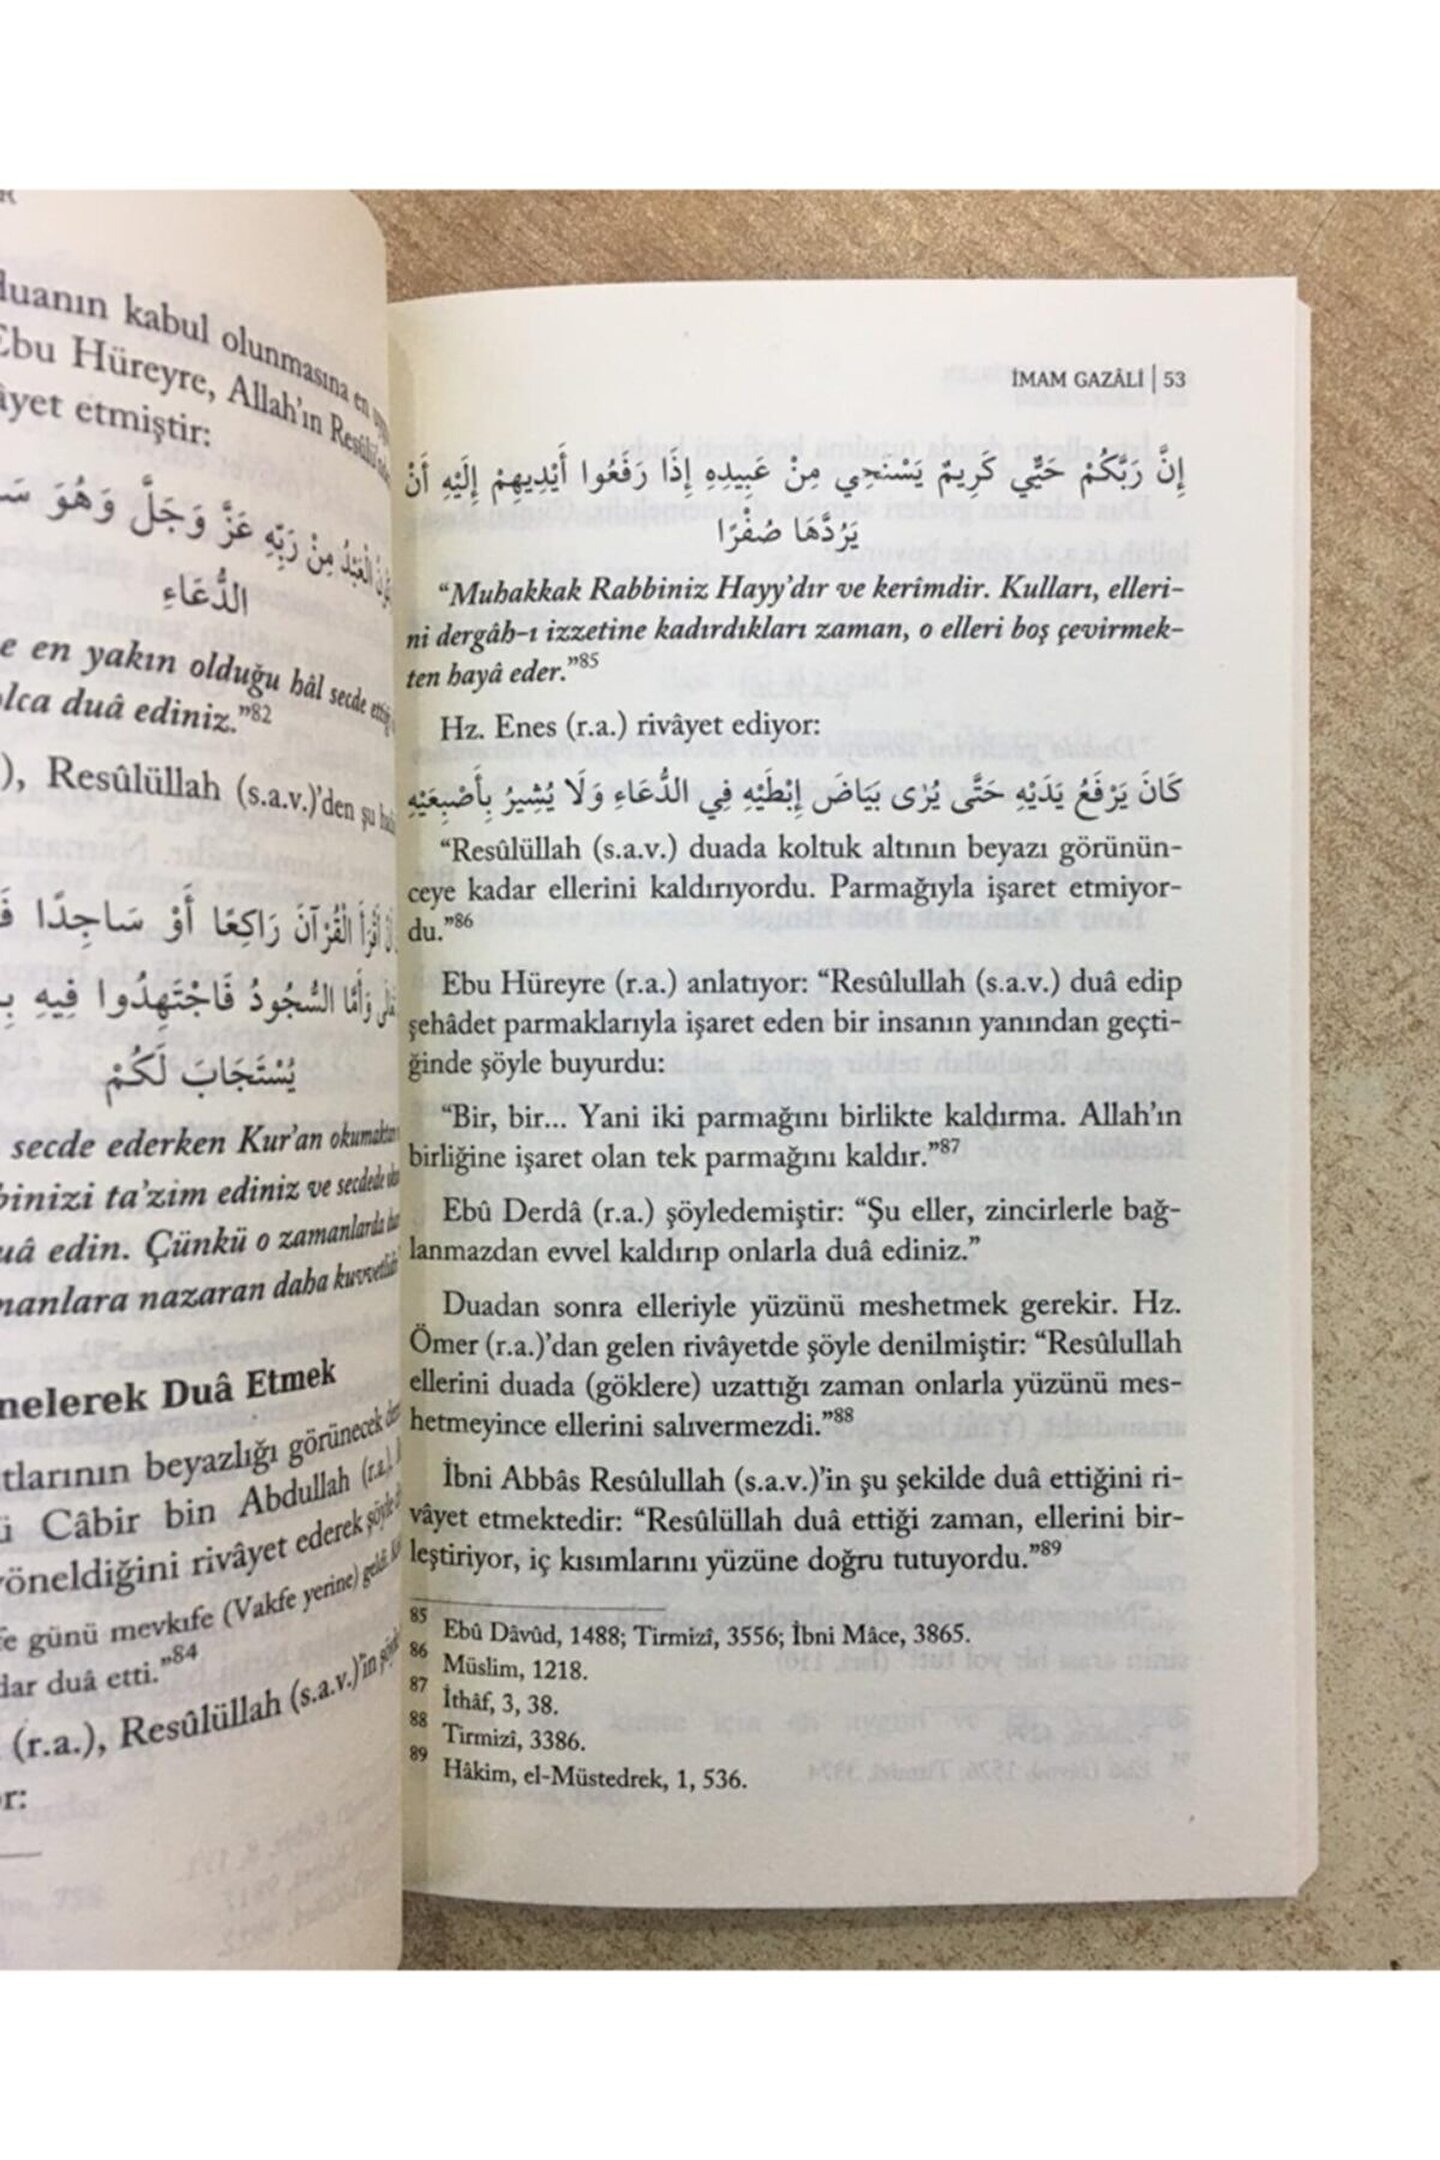 duanın kabul olunmasına en
Ebu Hüreyre, Allah'ın
etmiştir:
الْعَبْدُ مِنْ رَبِّهِ عَزَّ وَجَلَّ وَهُوَ
الدُّعَاءِ
en yakın olduğu hâl secde
duâ ediniz."82
Resûlüllah (s.a.v.)'den şu
أَقْرَأَ الْقُرْآنَ رَاكِعًا أَوْ سَاجِدًا
وَأَمَّا السُّجُودُ فَاجْتَهِدُوا فِيهِ
يُسْتَجَابَ لَكُمْ
secde ederken Kur'an okumaktan
ta'zim ediniz ve secdede
edin. Çünkü o zamanlarda
nazaran daha
Duâ Etmek
beyazlığı görünecek
Câbir bin Abdullah (r.a.),
yöneldiğini rivâyet ederek şöyle
günü mevkıfe (Vakfe yerine) geldi.
duâ etti."84
(r.a.), Resûlüllah (s.a.v.)'in
İMAM GAZÂLİ | 53
إِنَّ رَبَّكُمْ حَيٌّي كَرِيمٌ يَسْتَحِي مِنْ عَبِيدِهِ إِذَا رَفَعُوا أَيْدِيهِمْ إِلَيْهِ أَنْ
يَرُدَّهَا صُفْرًا
"Muhakkak Rabbiniz Hayy'dır ve kerîmdir. Kulları, elleri-
ni dergâh-ı izzetine kadırdıkları zaman, o elleri boş çevirmek-
ten hayâ eder."85
Hz. Enes (r.a.) rivâyet ediyor:
كَانَ يَرْفَعُ يَدَيْهِ حَتَّى يُرٰى بَيَاضَ إِبْطَيْهِ فِي الدُّعَاءِ وَلَا يُشِيرُ بِأَصْبِعَيْهِ
"Resûlüllah (s.a.v.) duada koltuk altının beyazı görünün-
ceye kadar ellerini kaldırıyordu. Parmağıyla işaret etmiyor-
du."86
Ebu Hüreyre (r.a.) anlatıyor: "Resûlullah (s.a.v.) duâ edip
şehâdet parmaklarıyla işaret eden bir insanın yanından geçti-
ğinde şöyle buyurdu:
"Bir, bir... Yani iki parmağını birlikte kaldırma. Allah'ın
birliğine işaret olan tek parmağını kaldır."87
Ebû Derdâ (r.a.) şöyledemiştir: "Şu eller, zincirlerle bağ-
lanmazdan evvel kaldırıp onlarla duâ ediniz."
Duadan sonra elleriyle yüzünü meshetmek gerekir. Hz.
Ömer (r.a.)'dan gelen rivâyetde şöyle denilmiştir: "Resûlullah
ellerini duada (göklere) uzattığı zaman onlarla yüzünü mes-
hetmeyince ellerini salıvermezdi."88
İbni Abbâs Resûlullah (s.a.v.)'in şu şekilde duâ ettiğini ri-
vâyet etmektedir: "Resûlüllah duâ ettiği zaman, ellerini bir-
leştiriyor, iç kısımlarını yüzüne doğru tutuyordu."89
85 Ebû Dâvûd, 1488; Tirmizî, 3556; İbni Mâce, 3865.
86 Müslim, 1218.
87 İthâf, 3, 38.
88 Tirmizî, 3386.
89 Hâkim, el-Müstedrek, 1, 536.